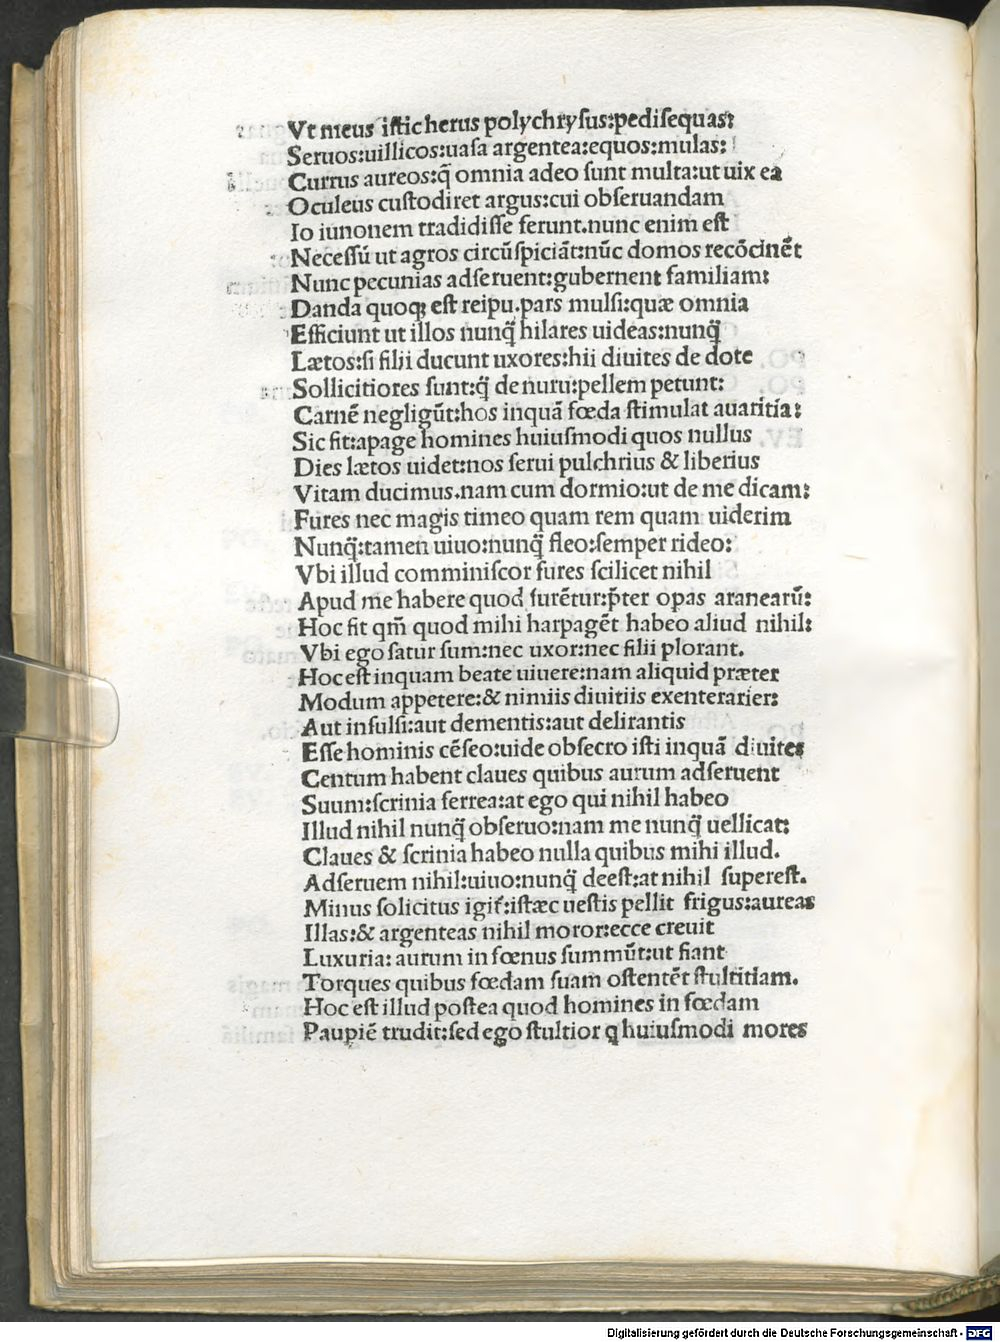 Vt meus iſtic herus polychryſus:pediſequas:
Seruos:uillicos:uaſa argentea:equos:mulas:
Currus aureos:q̃ omnia adeo ſunt multa:ut uix ea
Oculeus cuſtodiret argus:cui obſeruandam
Io iunonem tradidiſſe ferunt.nunc enim eſt
Neceſſũ ut agros circũſpiciãt:nũc domos recõcinẽt
Nunc pecunias adſeruent:gubernent familiam:
Danda quoqꝫ eſt reipu.pars mulſi:quæ omnia
Efficiunt ut illos nunq̃ hilares uideas:nunq̃
Lætos:ſi filii ducunt uxores:hii diuites de dote
Sollicitiores ſunt:q̃ de nuru:pellem petunt:
Carnẽ negligũt:hos inquã fœda ſtimulat auaritia:
Sic fit:apage homines huiuſmodi quos nullus
Dies lætos uidet:nos ſerui pulchrius & liberius
Vitam ducimus.nam cum dormio:ut de me dicam:
Fures nec magis timeo quam rem quam uiderim
Nunq̃:tamen uiuo:nunq̃ fleo:ſemper rideo:
Vbi illud comminiſcor fures ſcilicet nihil
Apud me habere quod furẽtur:p̃ter opas aranearũ:
Hoc fit qm̃ quod mihi harpagẽt habeo aliud nihil:
Vbi ego ſatur ſum:nec uxor:nec filii plorant.
Hoc eſt inquam beate uiuere:nam aliquid præter
Modum appetere:& nimiis diuitiis exenterarier:
Aut inſulſi:aut dementis:aut delirantis
Eſſe hominis cẽſeo:uide obſecro iſti inquã diuites
Centum habent claues quibus aurum adſeruent
Suum:ſcrinia ferrea:at ego qui nihil habeo
Illud nihil nunq̃ obſeruo:nam me nunq̃ uellicat:
Claues & ſcrinia habeo nulla quibus mihi illud.
Adſeruem nihil:uiuo:nunq̃ deeſt:at nihil ſupereſt.
Minus ſolicitus igit̃:iſtæc ueſtis pellit frigus:aureas
Illas:& argenteas nihil moror:ecce creuit
Luxuria: aurum in fœnus ſummũt:ut fiant
Torques quibus fœdam ſuam oſtentẽt ſtultitiam.
Hoc eſt illud poſtea quod homines in fœdam
Paupiẽ trudit:ſed ego ſtultior q̃ huiuſmodi mores
Digitalisierung gefördert durch die Deutsche Forschungsgemeinschaft - DFG